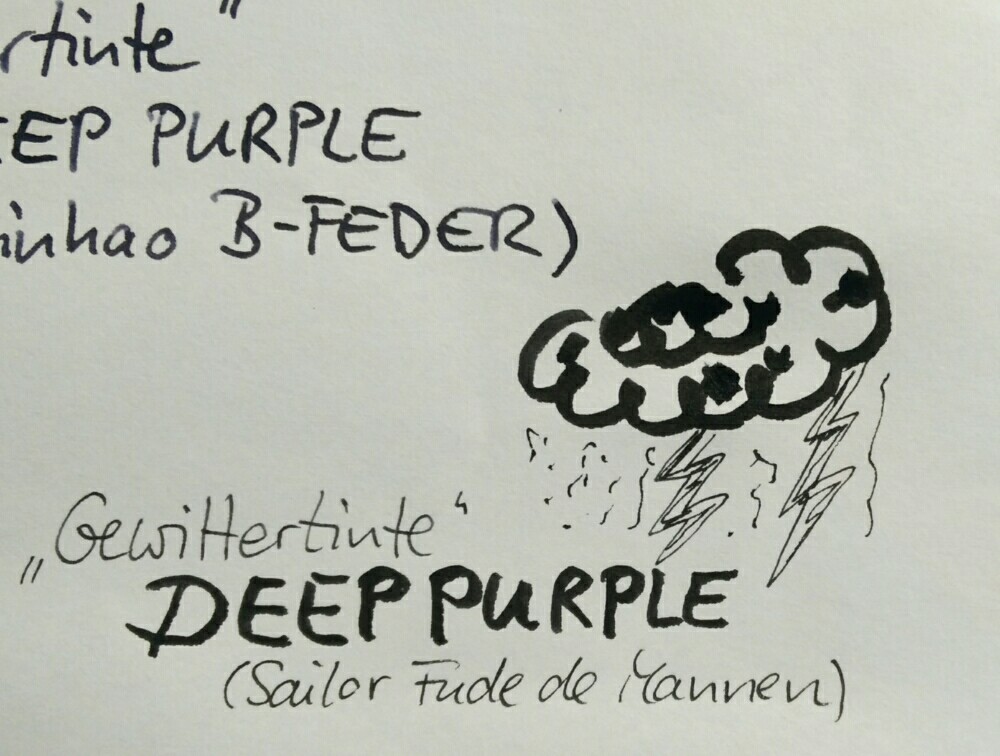 rtinte"
EEP PURPLE
inhao B-FEDER)
„Gewittertinte"
DEEP PURPLE
(Sailor Fude de Mannen)